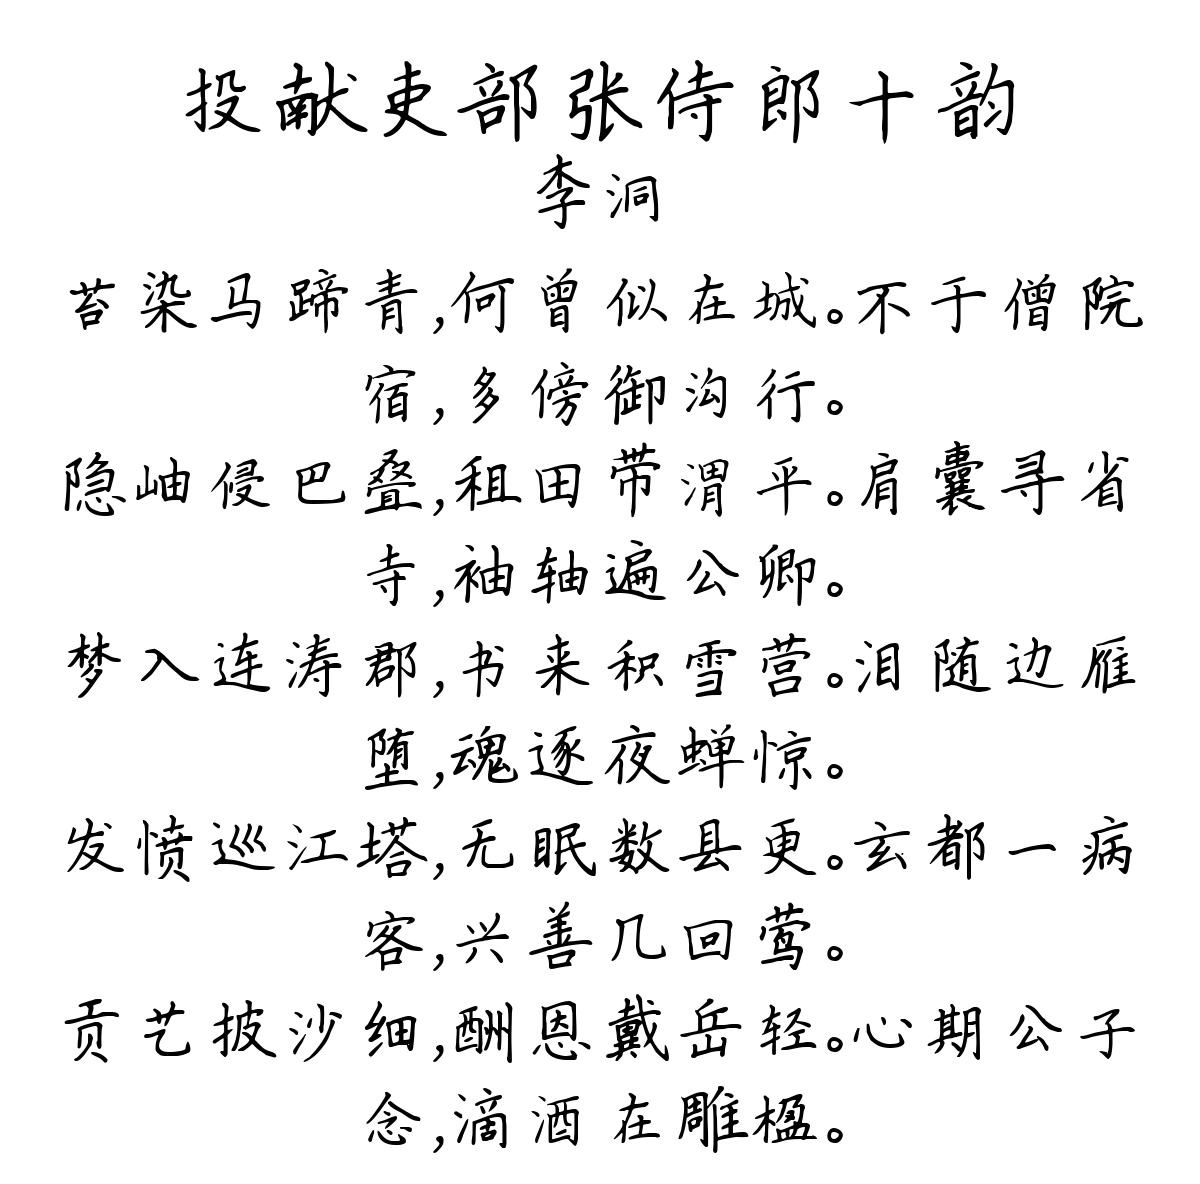 投献吏部张侍郎十韵
李洞
苔染马蹄青,何曾似在城。不于僧院
宿,多傍御沟行。
隐岫侵巴叠,租田带渭平。肩囊寻省
寺,袖轴遍公卿。
梦入连涛郡,书来积雪营。泪随边雁
堕,魂逐夜蝉惊。
发愤巡江塔,无眠数县更。玄都一病
客,兴善几回莺。
贡艺披沙细,酬恩戴岳轻。心期公子
念,滴酒在雕楹。